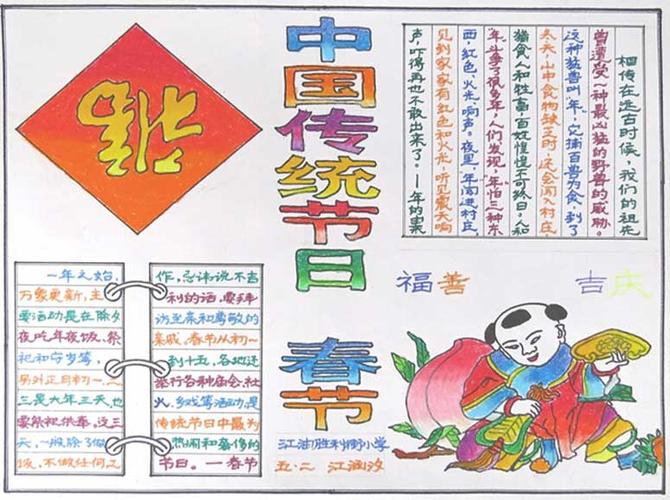 福
中国传统节日
春节
相传在远古时候，我们的祖先
曾遭受一种最凶猛的野兽的威胁。
这种猛兽叫“年”，它捕百兽为食，到了
冬天，山中食物缺乏时，还会闯入村庄，
猎食人和牲畜，百姓惶惶不可终日。人和
“年”斗争了很多年，人们发现，“年”怕三种东
西，红色、火光、响声。夜里“年”闯进村庄，
见到家家有红色和火光，听见震天响
声，吓得再也不敢出来了。——年的由来
一年之始，
万象更新，主
要活动是在除夕
夜吃年夜饭，祭
祀和守岁等，
另外正月初一、二、
三是大年三天，也
要祭祀供奉，这三
天，一般除了做
饭，不做任何工
作，忌讳说不吉
利的话，要拜
访至亲和尊敬的
亲戚。春节从初一
到十五，各地还
举行各种庙会、社
火、乡戏等活动，是
传统节日中最为
热闹和奢侈的
节日。—春节
福善 吉庆
江油胜利街小学
五·二 江涵汐